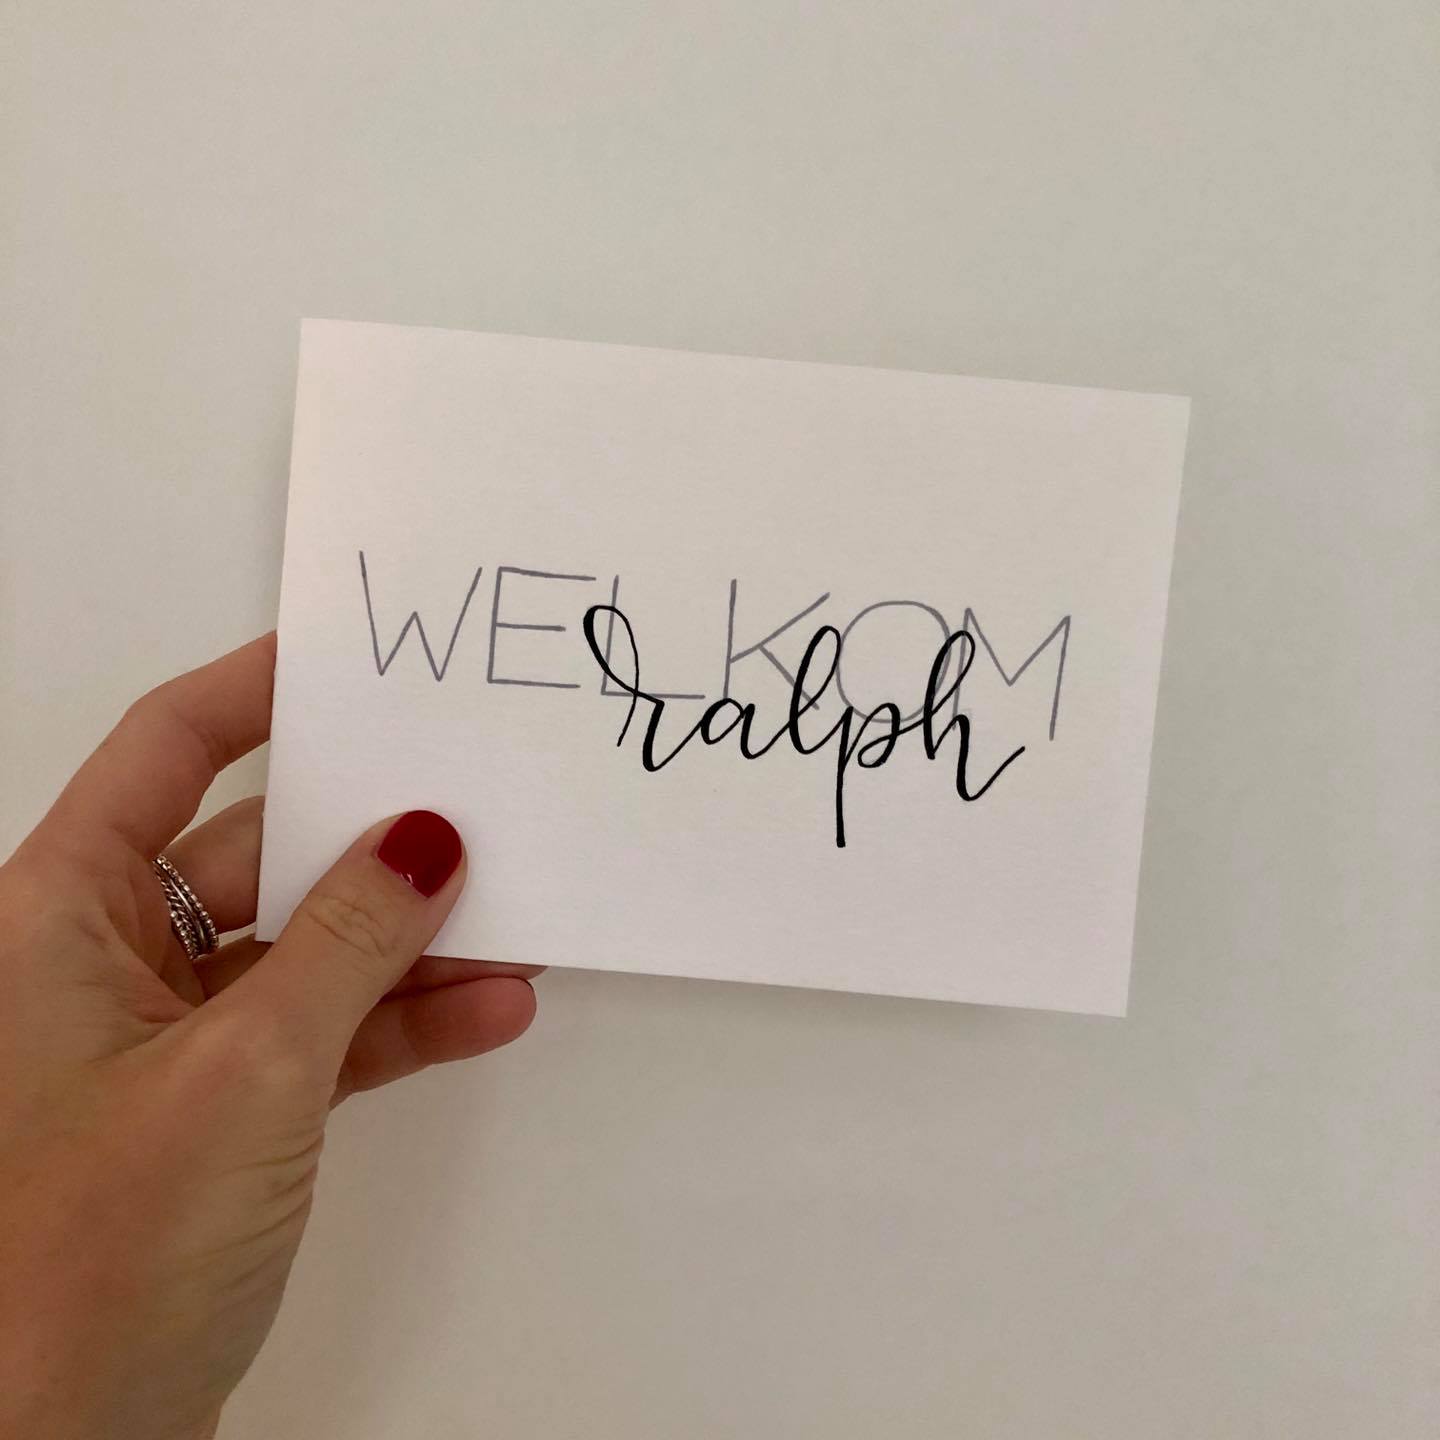 WELKOM
ralph